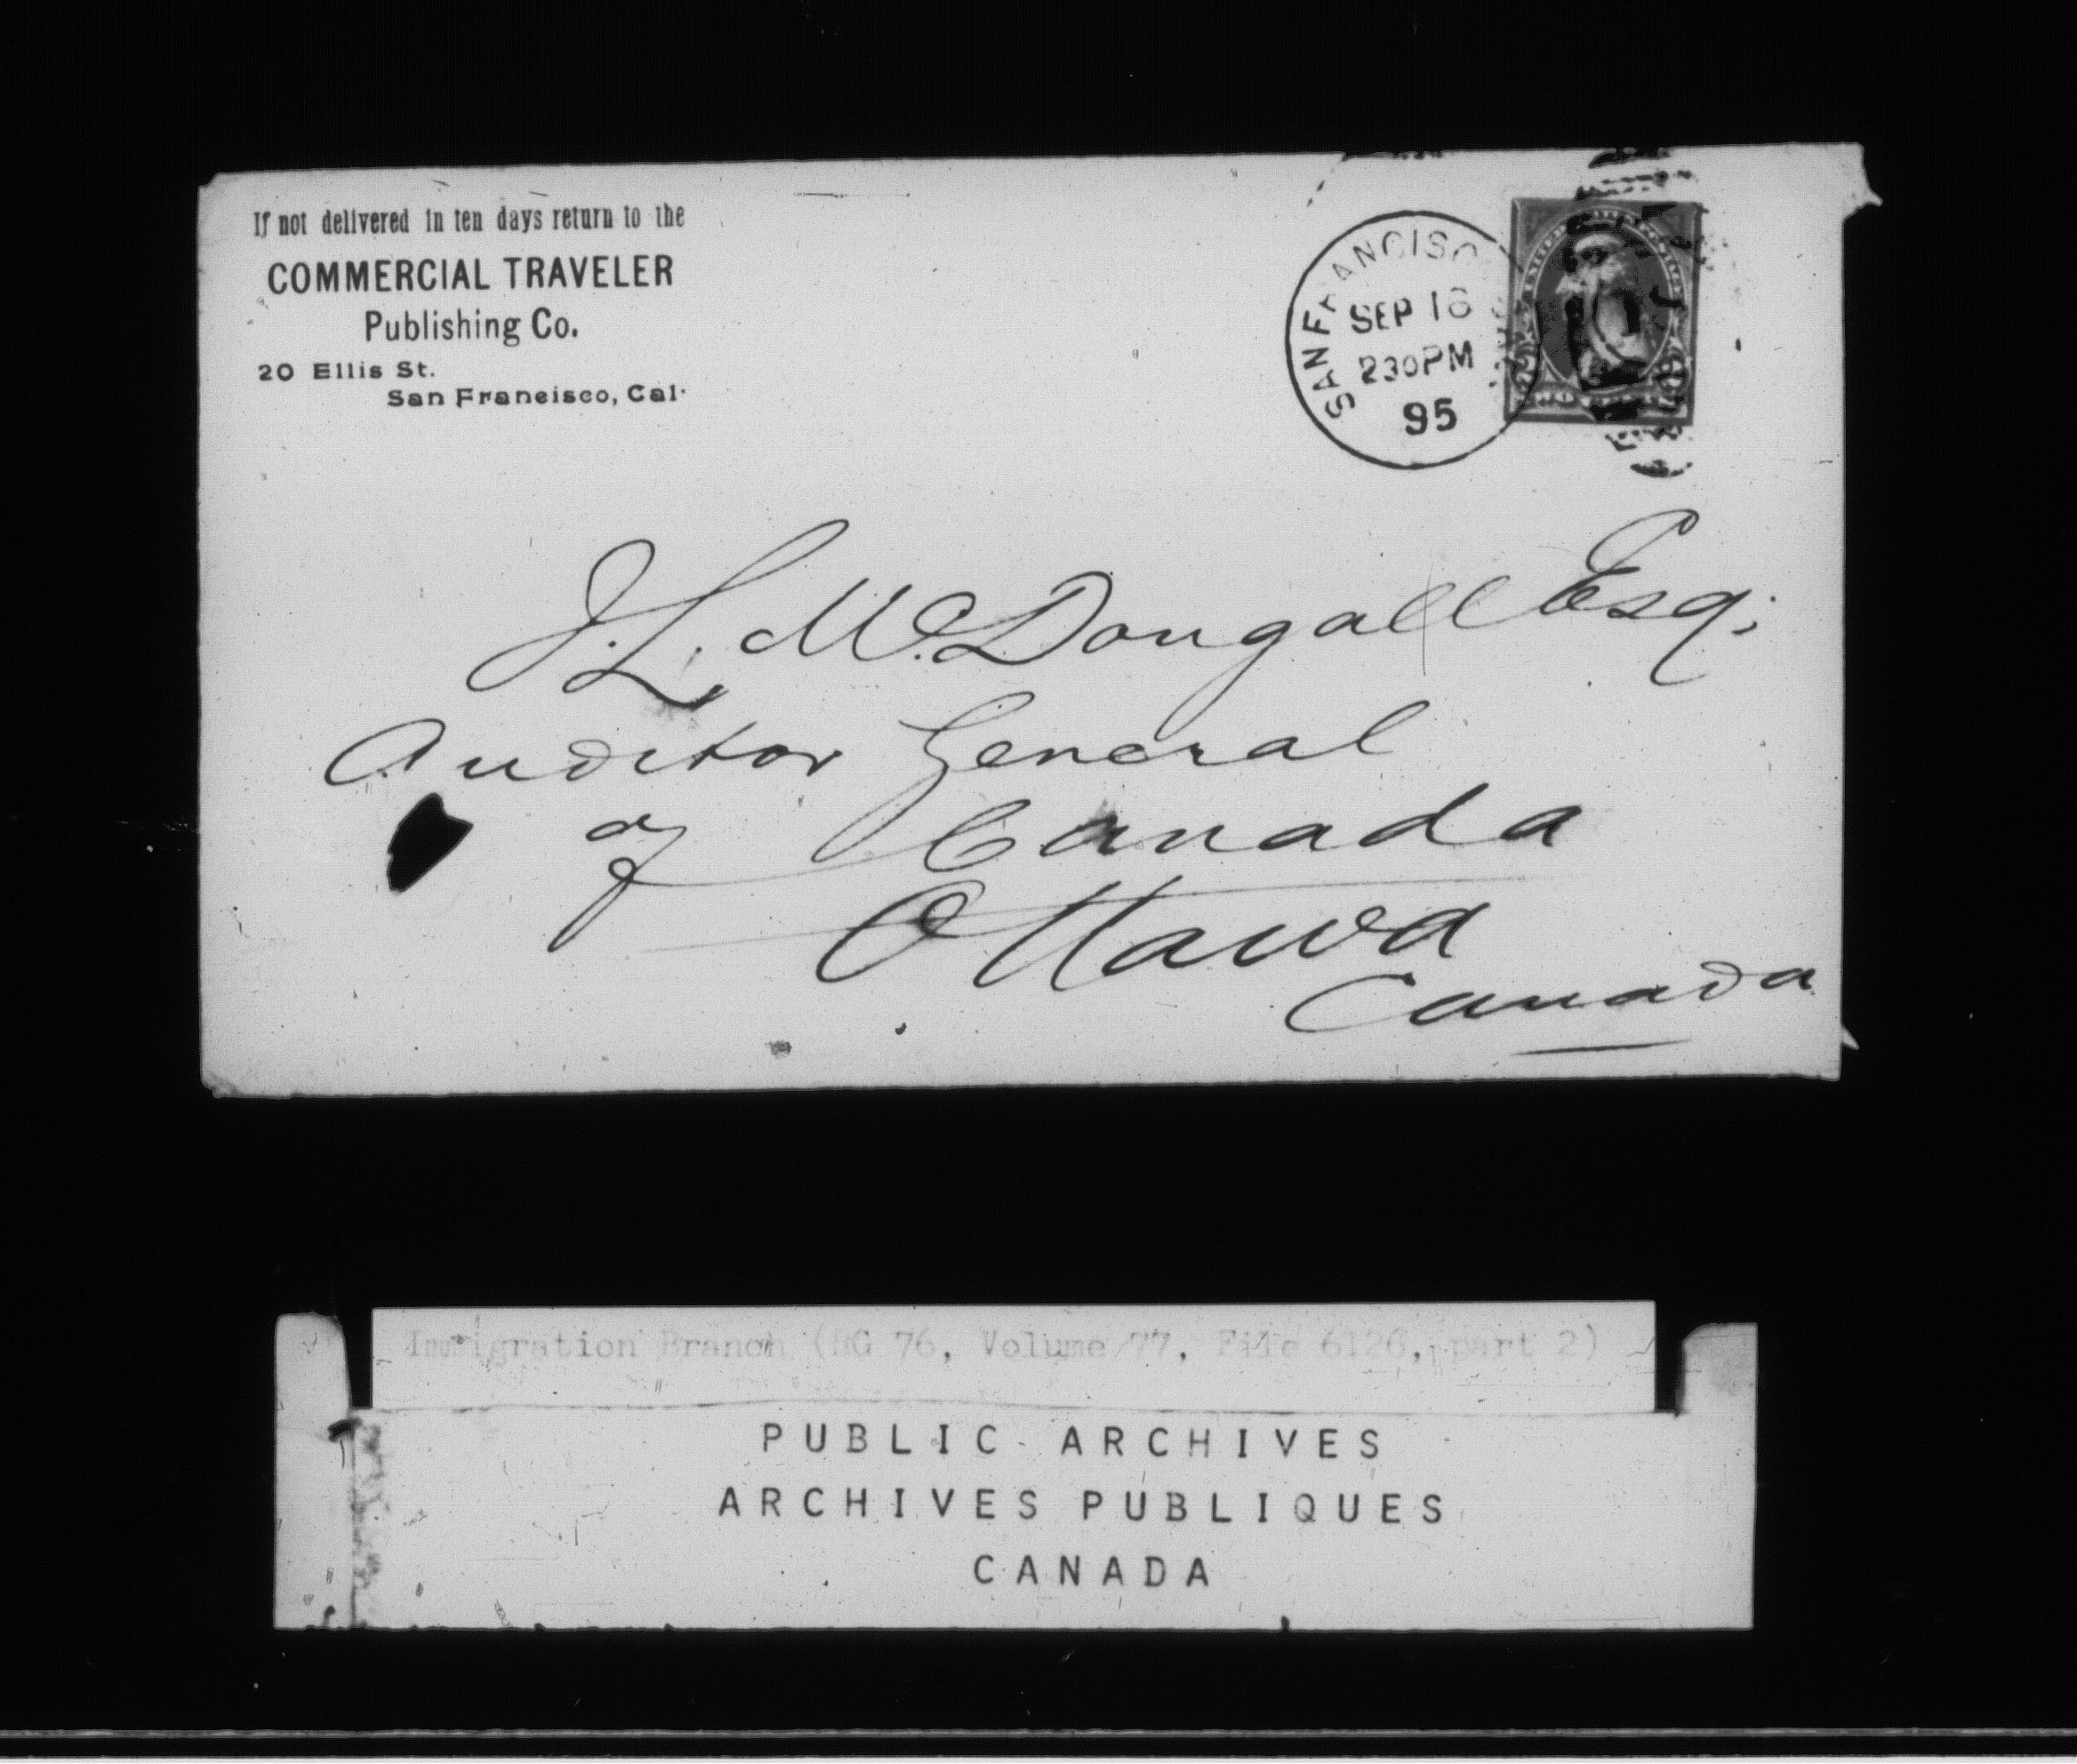 If not delivered in ten days return to the
COMMERCIAL TRAVELER
Publishing Co.
20 Ellis St.
San Francisco, Cal.
SAN FRANCISCO
SEP 16
230PM
95
J. L. McDougall Esq.
Auditor General
of Canada
Ottawa
Canada
Immigration Branch (RG 76, Volume 77, File 6126, part 2)
PUBLIC ARCHIVES
ARCHIVES PUBLIQUES
CANADA